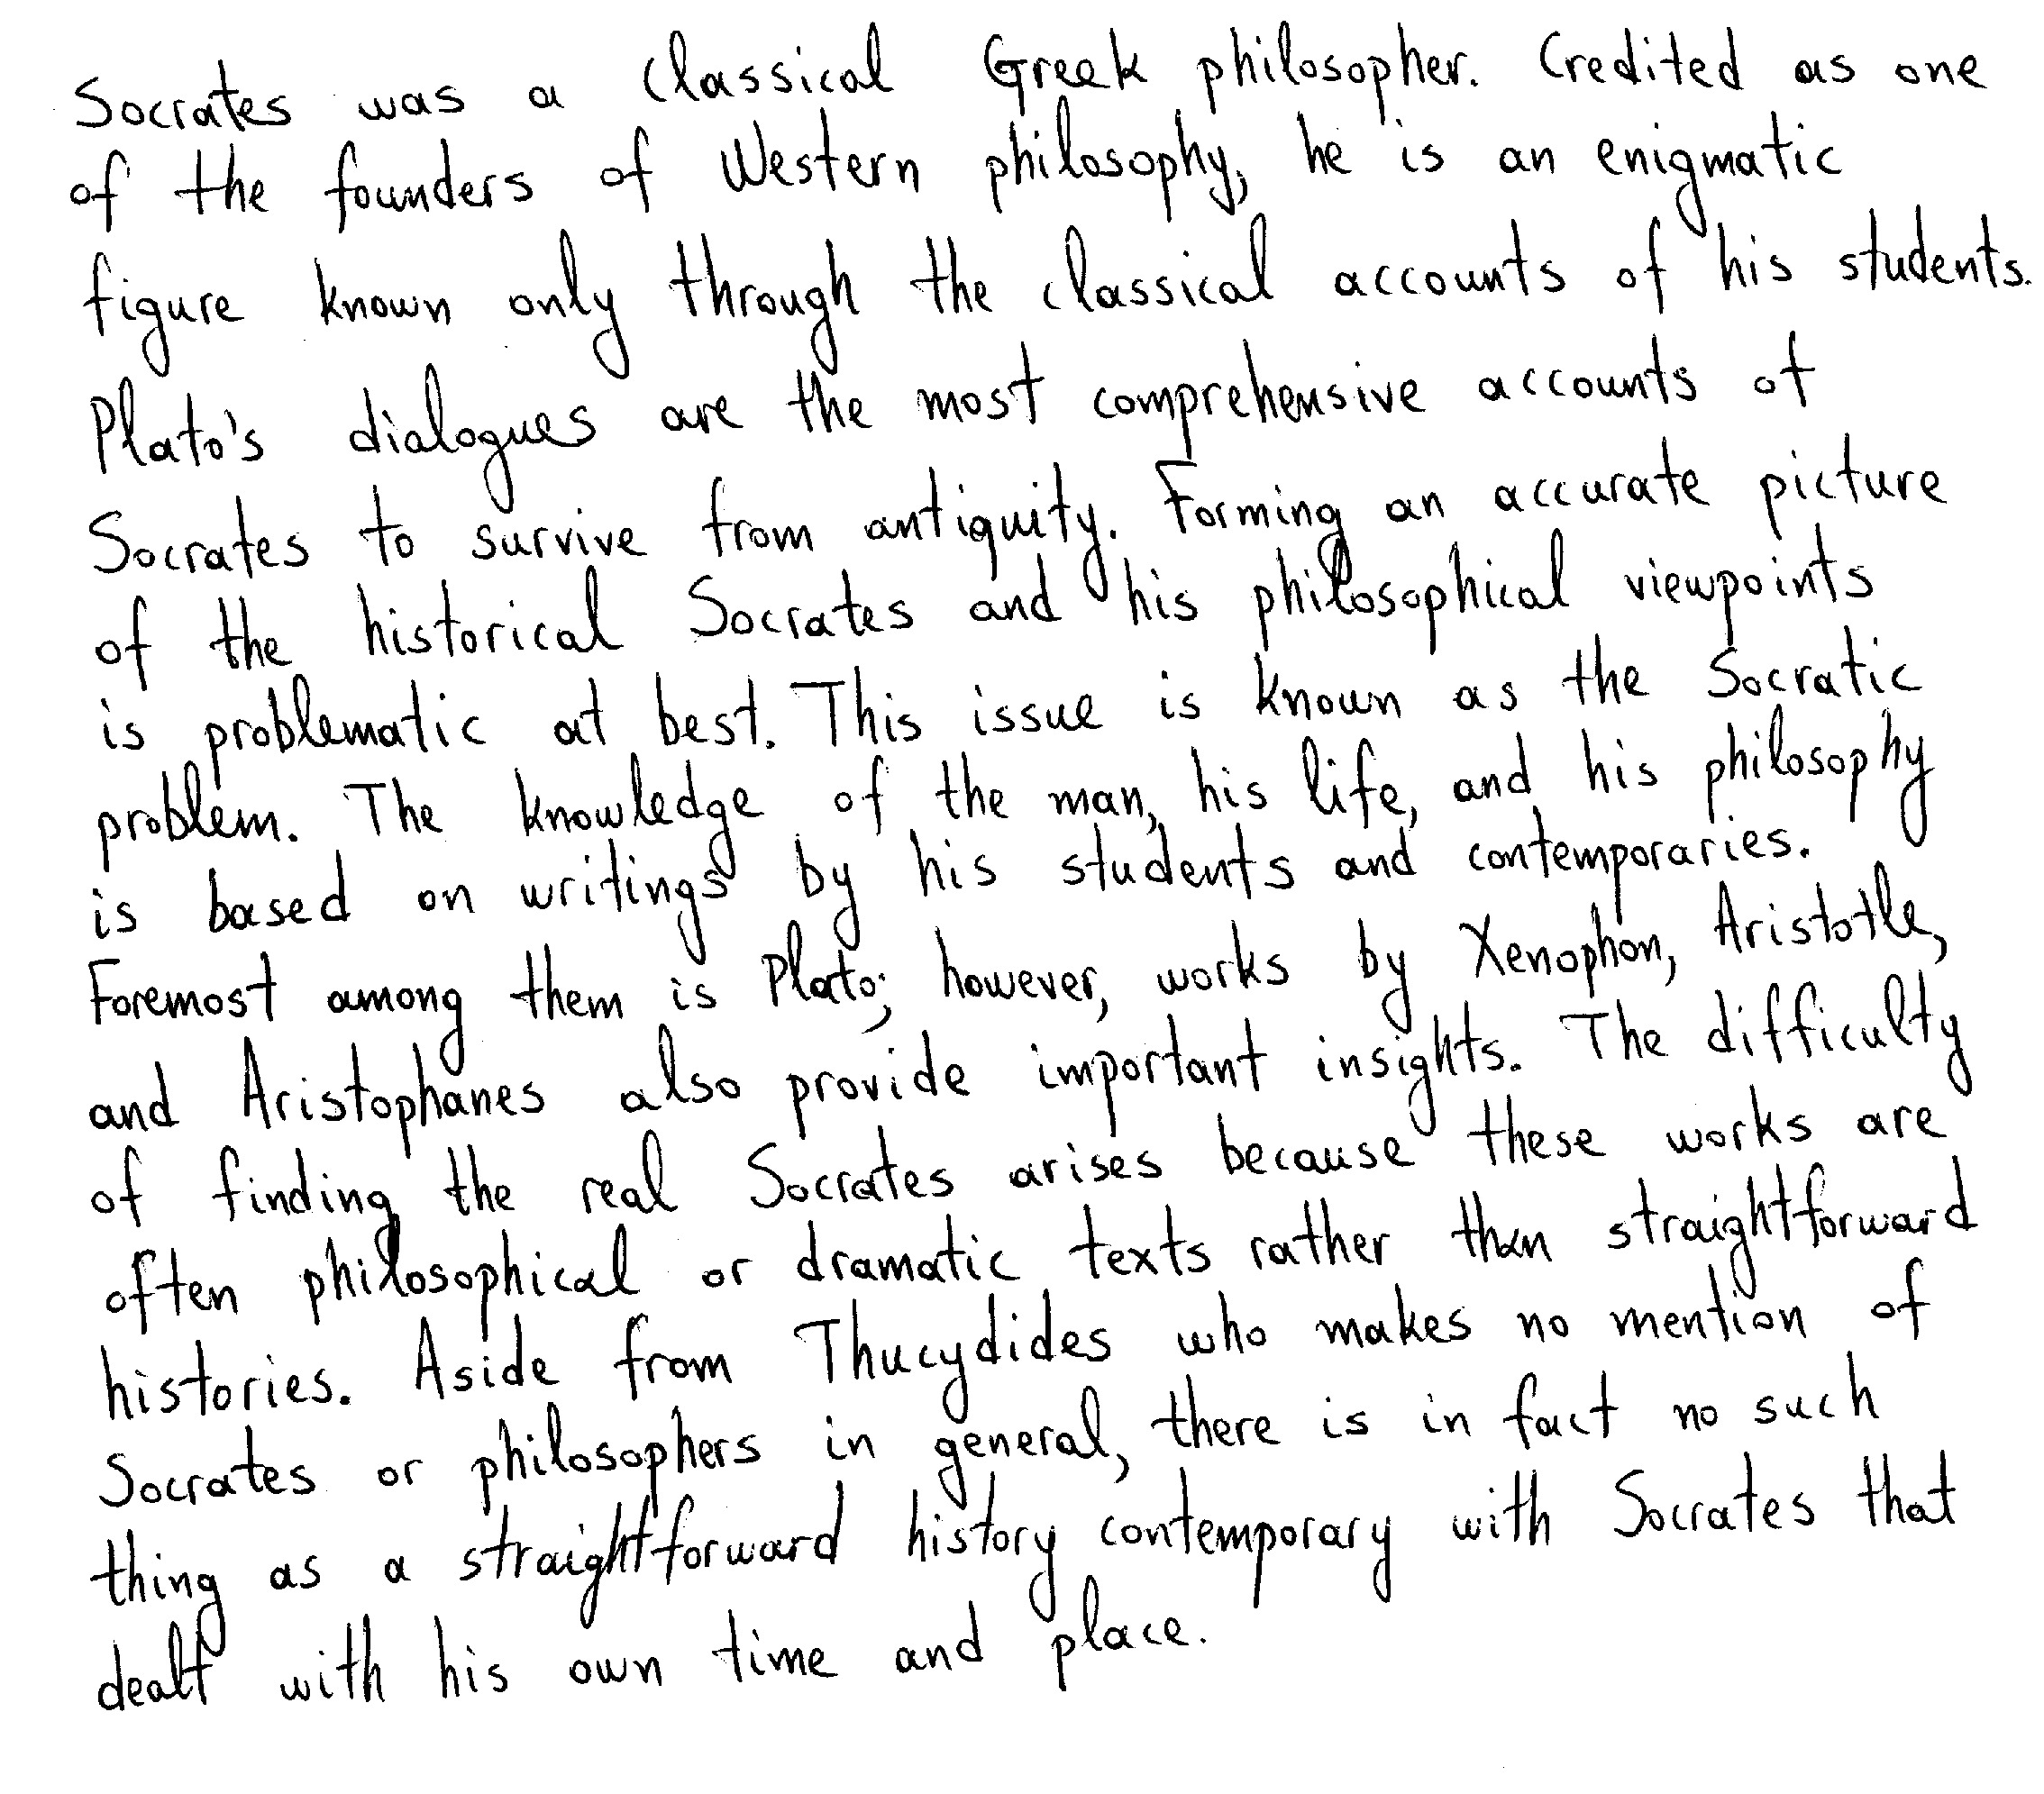 Socrates was a classical Greek philosopher. Credited as one
of the founders of Western philosophy, he is an enigmatic
figure known only through the classical accounts of his students.
Plato's dialogues are the most comprehensive accounts of
Socrates to survive from antiquity. Forming an accurate picture
of the historical Socrates and his philosophical viewpoints
is problematic at best. This issue is known as the Socratic
problem. The knowledge of the man, his life, and his philosophy
is based on writings by his students and contemporaries.
Foremost among them is Plato; however, works by Xenophon, Aristotle,
and Aristophanes also provide important insights. The difficulty
of finding the real Socrates arises because these works are
often philosophical or dramatic texts rather than straightforward
histories. Aside from Thucydides who makes no mention of
Socrates or philosophers in general, there is in fact no such
thing as a straightforward history contemporary with Socrates that
dealt with his own time and place.